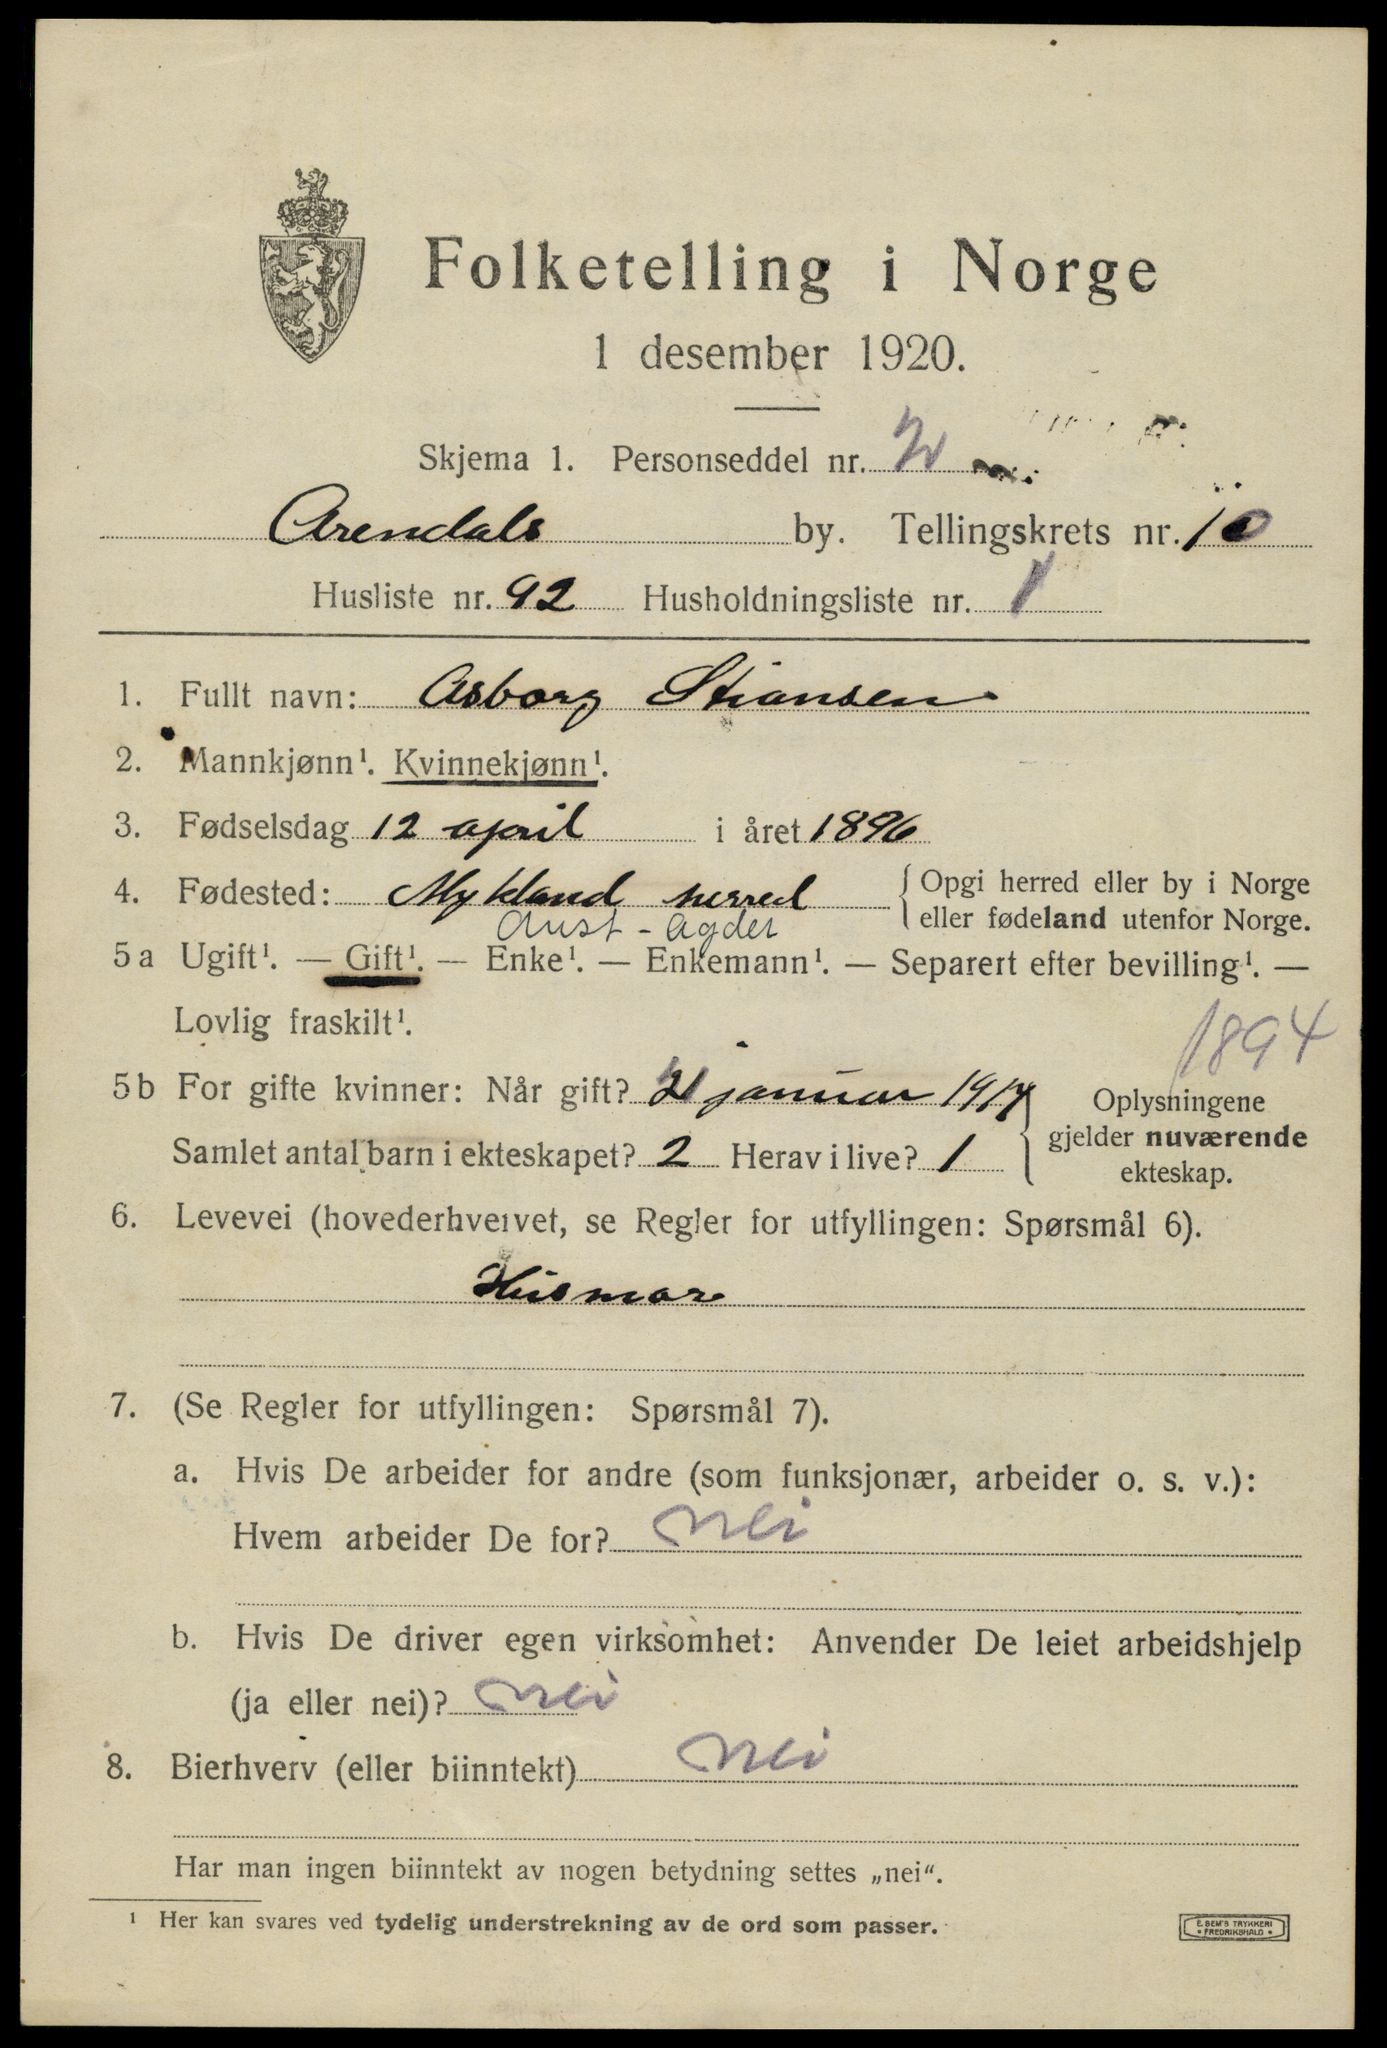 Folketelling i Norge
1 desember 1920.
Skjema 1. Personseddel nr. 2
Arendals by. Tellingskrets nr. 10
Husliste nr. 92 Husholdningsliste nr. 1
1. Fullt navn: Asborg Stiansen
2. Mannkjønn¹. Kvinnekjønn¹.
3. Fødselsdag 12 april i året 1896
4. Fødested: Mykland herred { Opgi herred eller by i Norge
eller fødeland utenfor Norge.
Aust-Agder
5a Ugift¹. — Gift¹. — Enke¹. — Enkemann¹. — Separert efter bevilling¹. —
Lovlig fraskilt¹.
1894
5b For gifte kvinner: Når gift? 21 januar 1917 } Oplysningene
gjelder nuværende
ekteskap.
Samlet antal barn i ekteskapet? 2 Herav i live? 1
6. Levevei (hovederhvervet, se Regler for utfyllingen: Spørsmål 6).
Husmor
7. (Se Regler for utfyllingen: Spørsmål 7).
a. Hvis De arbeider for andre (som funksjonær, arbeider o. s. v.):
Hvem arbeider De for? nei
b. Hvis De driver egen virksomhet: Anvender De leiet arbeidshjelp
(ja eller nei)? nei
8. Bierhverv (eller biinntekt) nei
Har man ingen biinntekt av nogen betydning settes „nei“.
¹ Her kan svares ved tydelig understrekning av de ord som passer.
E. SEM'S TRYKKERI
• FREDRIKSHALD •